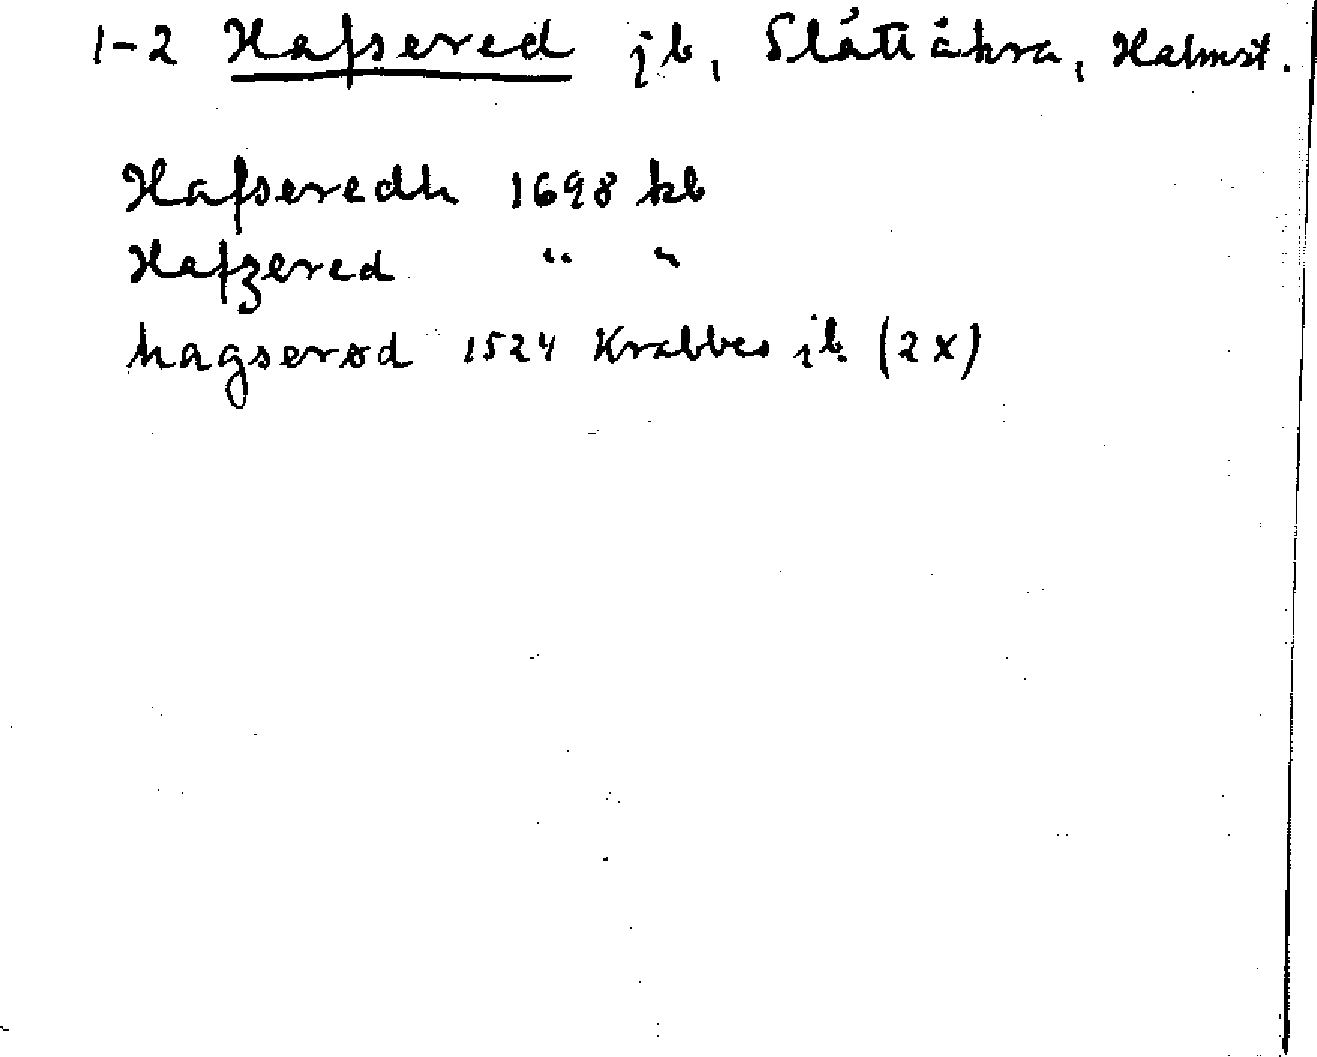 1-2 Hafsered jb, Slättåkra, Halmst.
Hafseredh 1698 kb
Hafzered " "
hagserød 1524 Krabbes jb (2x)